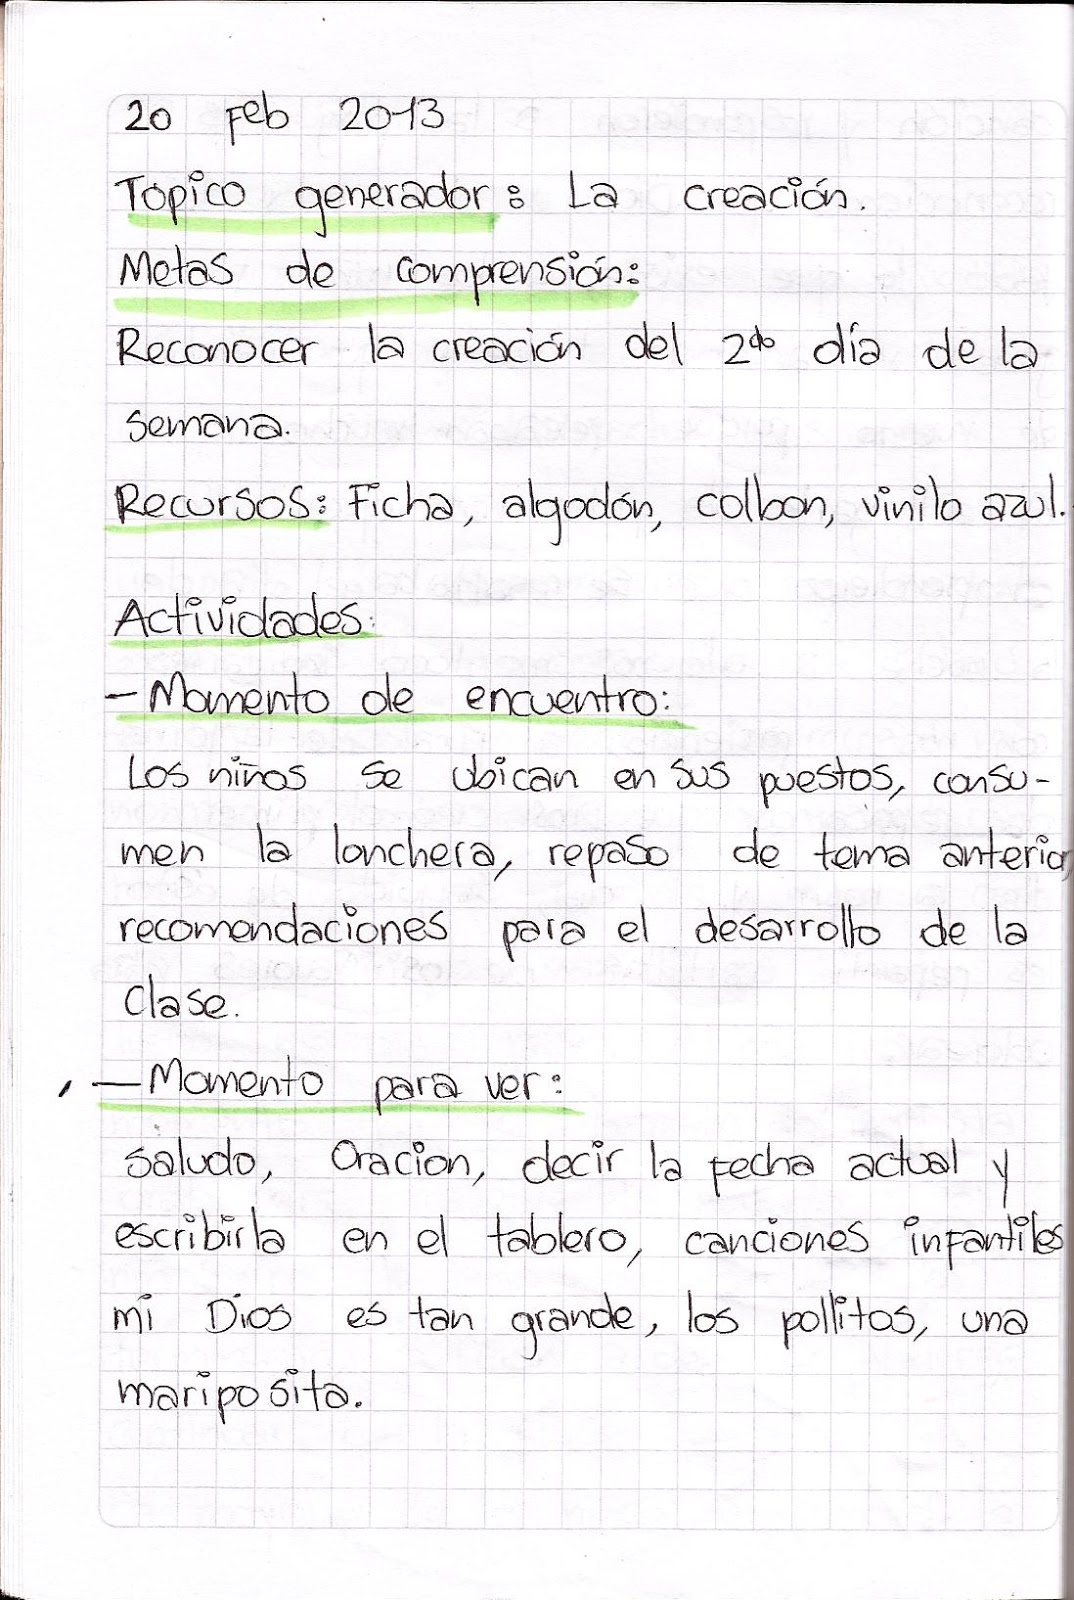 20 Feb 2013
Topico generador: La creación.
Metas de comprensión:
Reconocer la creación del 2do día de la
semana.
Recursos: Ficha, algodón, colbon, vinilo azul.
Actividades:
- Momento de encuentro:
Los niños se ubican en sus puestos, consu-
men la lonchera, repaso de tema anterior,
recomendaciones para el desarrollo de la
clase.
- Momento para ver:
saludo, Oracion, decir la fecha actual y
escribirla en el tablero, canciones infantiles
mi Dios es tan grande, los pollitos, una
mariposita.